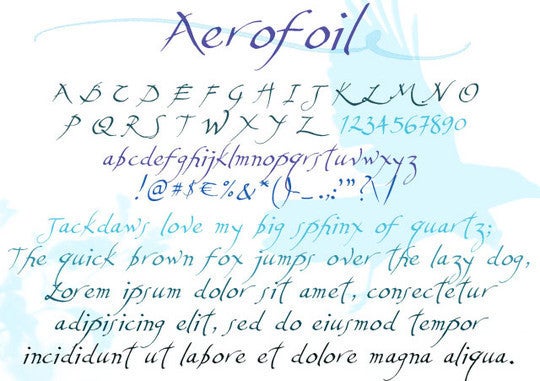 Aerofoil
A B C D E F G H I J K L M N O
P Q R S T W X Y Z 1234567890
abcdefghijklmnopqrstuvwxyz
!@#$€%&*()-_.,:;'"?\/
Jackdaws love my big sphinx of quartz;
The quick brown fox jumps over the lazy dog,
Lorem ipsum dolor sit amet, consectetur
adipisicing elit, sed do eiusmod tempor
incididunt ut labore et dolore magna aliqua.